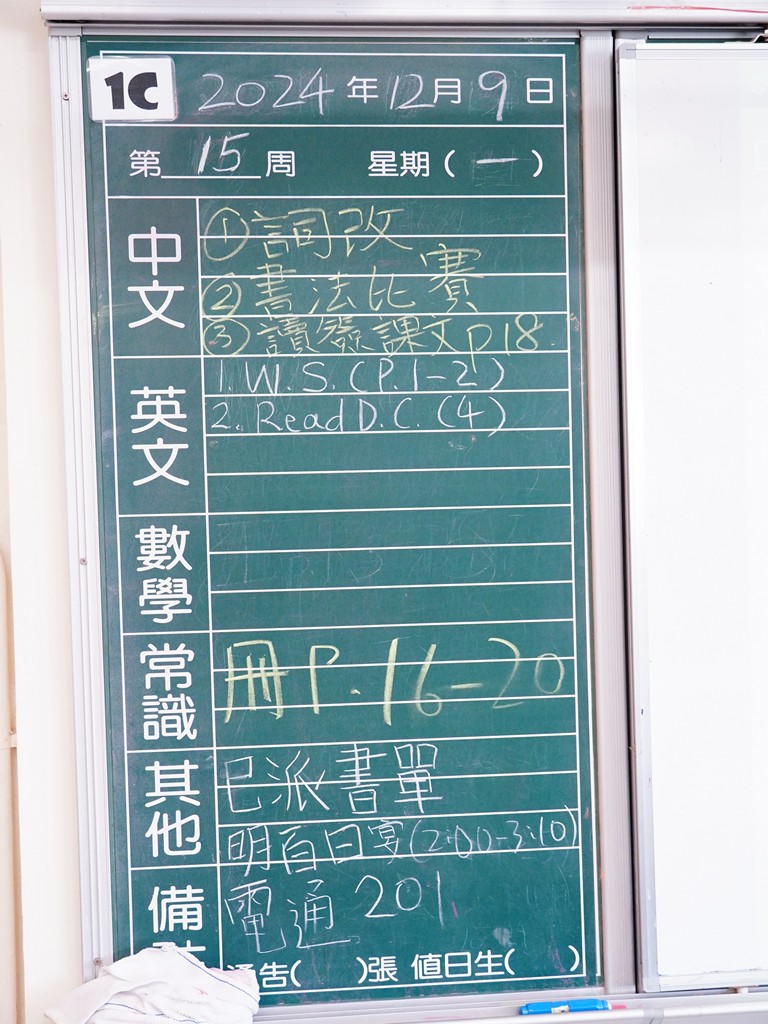 1C 2024年12月9日
第15周 星期(一)
中文
①詞改
②書法比賽
③讀簽課文p18
英文
1. W.S. (P.1-2)
2. Read D.C. (4)
數學
常識
冊P.16-20
其他
已派書單
明百日宴(2:00-3:10)
備
電通201
通告( )張 值日生( )